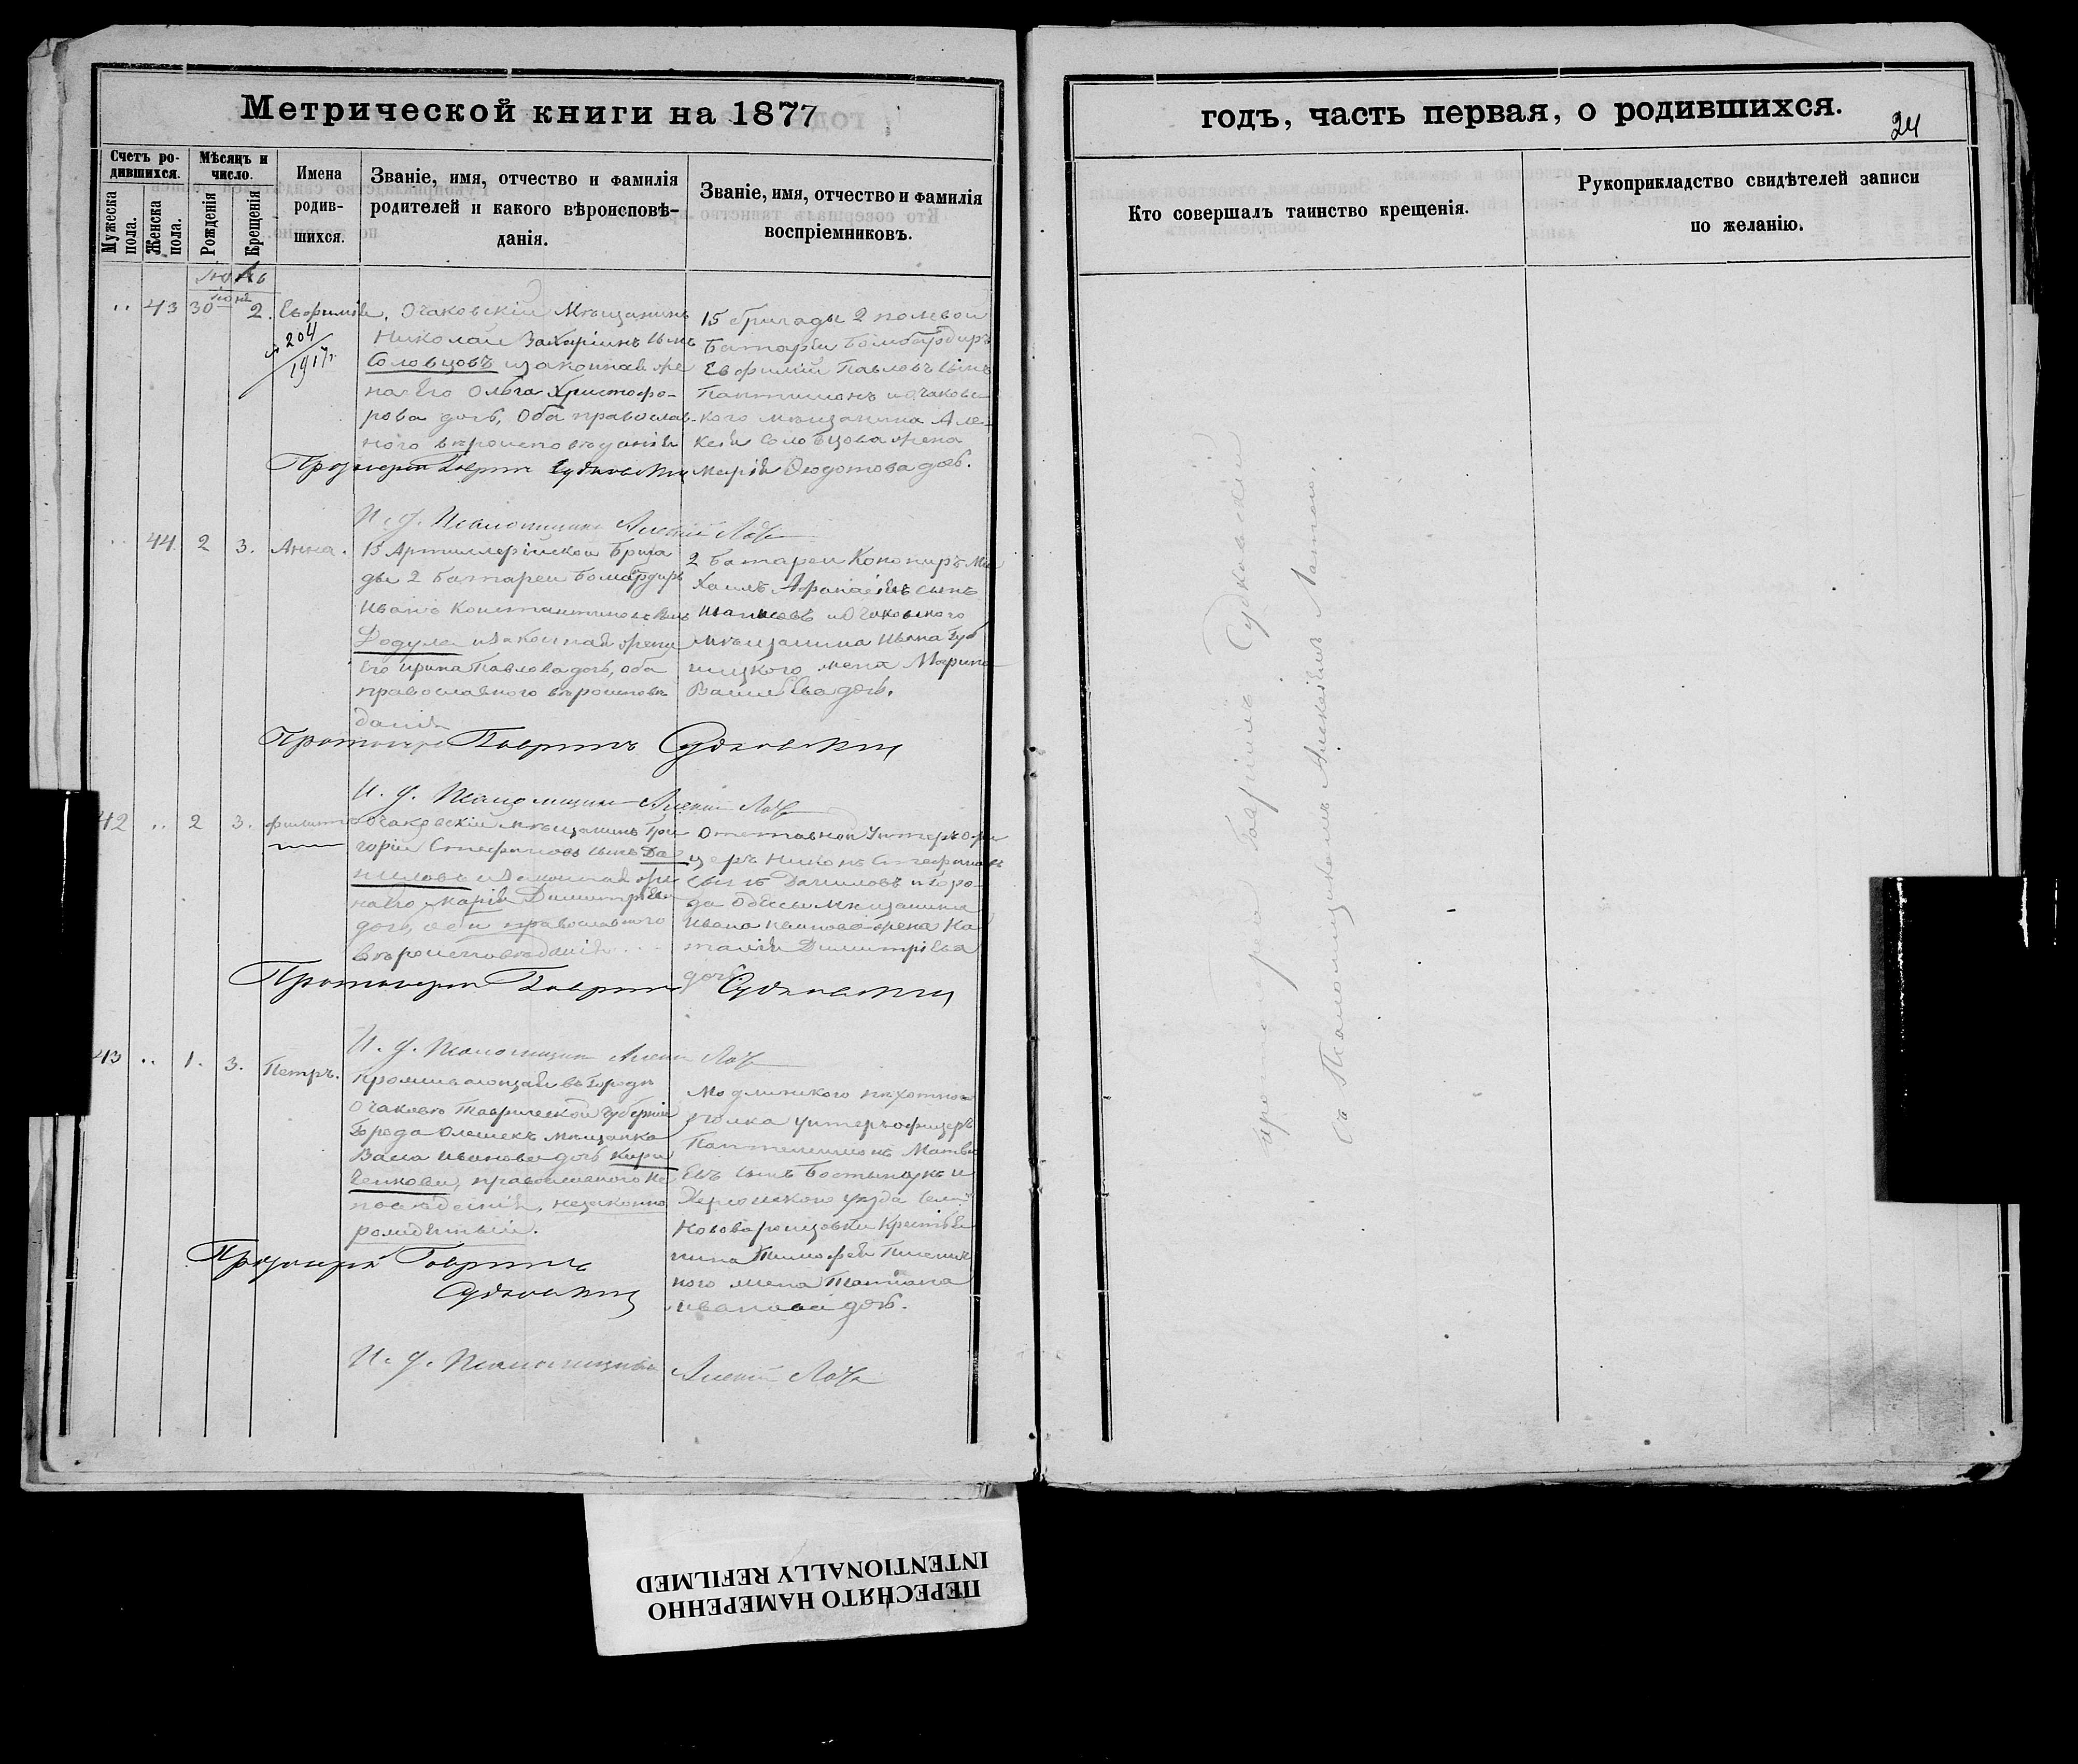 Метрической книги на 1877
Счетъ ро-
дившихся.
Мужеска
пола.
Женска
пола.
Мѣсяцъ и
число.
Рожденія
Крещенія
Имена
родив-
шихся.
Званіе, имя, отчество и фамилія
родителей и какого вѣроисповѣ-
данія.
Званіе, имя, отчество и фамилія
воспріемниковъ.
43 30 2. Евфимія.
204
1917г.
Очаковскій Мѣщанинъ
Николай Захаріинъ сынъ
Соловцовъ и законная же
на Его Ольга Христофо-
рова дочь, Оба православ-
ного вѣроисповѣданія
15 бригады 2 полевой
Батареи Бомбардиръ
Евфимій Павловъ сынъ
кого мѣщанина Але-
ксѣя Соловцова жена
Марія Ѳеодотова дочь.
Протоіерей Гавріилъ Судковскій
И. д. Псаломщика Алексій
44 2 3. Анна.
15 Артиллерійской Брига
ды 2 Батареи Бомбардиръ
Иванъ Константиновъ сынъ
Додула и законная жена
Его Ирина Павлова дочь, оба
православного вѣроисповѣ
данія
2 Батареи Канониръ Ми
хаилъ сынъ
и Очаковского
мѣщанина Ивана
жена Марина
дочь.
Протоіерей Гавріилъ Судковскій
И. д. Псаломщика Алексій
42 .. 2 3. Филиппъ
Очаковскій мѣщанинъ Гри
горій Стефановъ сынъ Да
ниловъ и законная же
на Его Марія Димитріева
дочь, оба православного
вѣроисповѣданія
Отставной Унтеръ Офи
церъ Стефановъ
сынъ Даниловъ и Горо-
да Одессы мѣщанина
Ивана жена На
талія Димитріева
дочь
Протоіерей Гавріилъ Судковскій
И. д. Псаломщика Алексій
43 .. 1. 3. Петръ.
Проживающая въ Городѣ
Очаковѣ Таврической Губерніи
Города Олешекъ мѣщанка
Васса Иванова дочь Кири
ченкова, православного ис
повѣданія, незаконно
рожденный.
Модлинского пѣхотного
полка унтеръ офицеръ
Пантелеимонъ Матвѣ
евъ сынъ и
Херсонского уѣзда села
Нововоронцовки Крестья
нина Тимофея
ного жена Татіана
Иванова дочь.
Протоіерей Гавріилъ
Судковскій
И. д. Псаломщика Алексій
годъ, часть первая, о родившихся.
24
Кто совершалъ таинство крещенія.
Рукоприкладство свидѣтелей записи
по желанію.
Протоіерей Гавріилъ Судковскій
Съ Псаломщикомъ Алексіемъ
ПЕРЕСНЯТО НАМЕРЕННО
INTENTIONALLY REFILMED